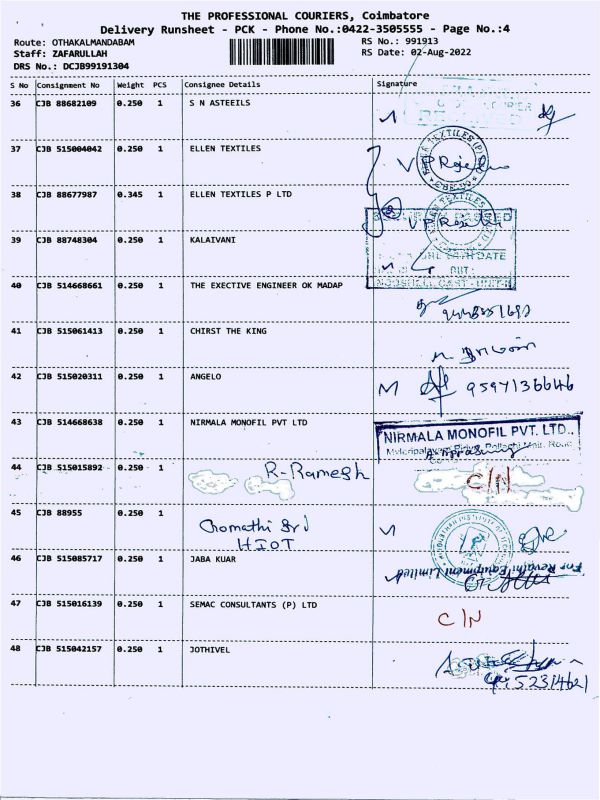 THE PROFESSIONAL COURIERS, Coimbatore
Delivery Runsheet - PCK - Phone No.:0422-3505555 - Page No.:4
Route: OTHAKALMANDABAM
RS No.: 991913
Staff: ZAFARULLAH
RS Date: 02-Aug-2022
DRS No.: DCJB99191304
S No Consignment No Weight PCS Consignee Details Signature
36 CJB 88682109 0.250 1 S N ASTEEILS
37 CJB 515004042 0.250 1 ELLEN TEXTILES
38 CJB 88677987 0.345 1 ELLEN TEXTILES P LTD
39 CJB 88748304 0.250 1 KALAIVANI
40 CJB 514668661 0.250 1 THE EXECTIVE ENGINEER OK MADAP
41 CJB 515061413 0.250 1 CHIRST THE KING
42 CJB 515020311 0.250 1 ANGELO M 9597136646
43 CJB 514668638 0.250 1 NIRMALA MONOFIL PVT LTD
NIRMALA MONOFIL PVT. LTD.,
44 CJB 515015892 0.250 1 R-Ramesh C/N
45 CJB 88955 0.250 1 Gomathi Sri
HIOT
46 CJB 515085717 0.250 1 JABA KUAR For Revathi Equipment Limited
47 CJB 515016139 0.250 1 SEMAC CONSULTANTS (P) LTD C/N
48 CJB 515042157 0.250 1 JOTHIVEL